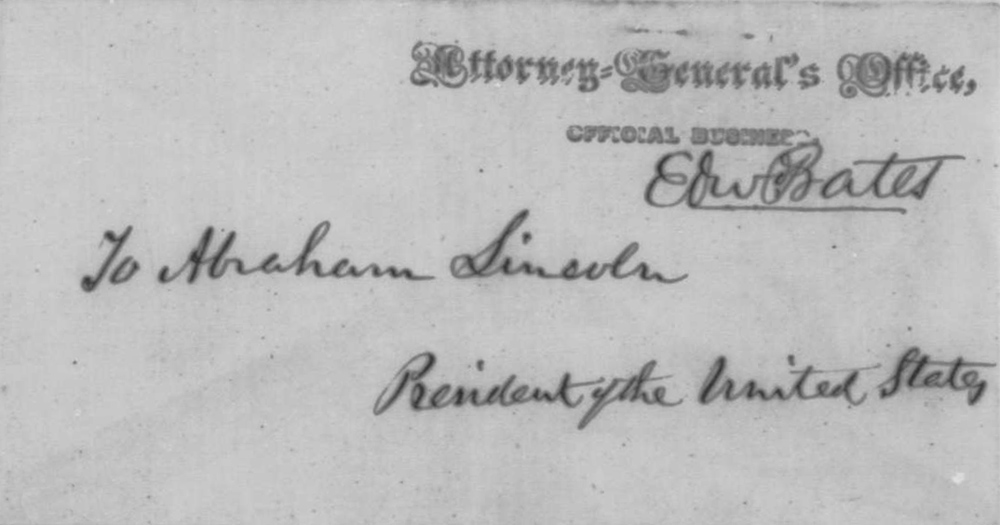 Attorney-General's Office,
OFFICIAL BUSINESS.
Edw Bates
To Abraham Lincoln
President of the United States